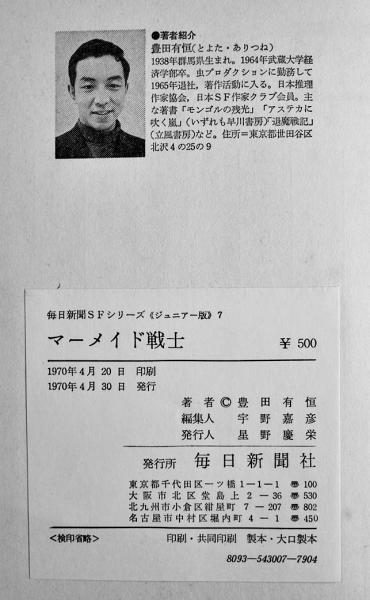 ●著者紹介
豊田有恒(とよた・ありつね)
1938年群馬県生まれ。1964年武蔵大学経
済学部卒。虫プロダクションに勤務して
1965年退社，著作活動に入る。日本推理
作家協会，日本ＳＦ作家クラブ会員。主
な著書「モンゴルの残光」「アステカに
吹く嵐」(いずれも早川書房)「退魔戦記」
(立風書房)など。住所＝東京都世田谷区
北沢4の25の9
毎日新聞ＳＦシリーズ《ジュニアー版》7
マーメイド戦士 ￥500
1970年4月20日 印刷
1970年4月30日 発行
著者 © 豊田有恒
編集人 宇野嘉彦
発行人 星野慶栄
発行所 毎日新聞社
東京都千代田区一ツ橋1－1－1 〠100
大阪市北区堂島上2－36 〠530
北九州市小倉区紺屋町7－207 〠802
名古屋市中村区堀内町4－1 〠450
＜検印省略＞ 印刷・共同印刷 製本・大口製本
8093-543007-7904